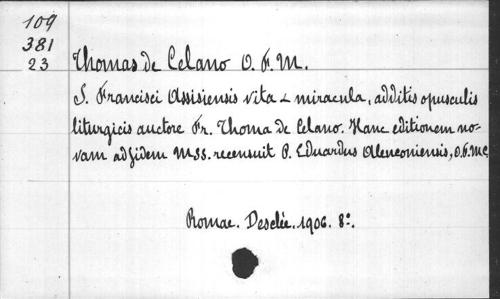 109
381
23
Thomas de Celano O. F. M.
S. Francisci Assisiensis vita & miracula, additis opusculis
liturgicis auctore Fr. Thoma de Celano. Hanc editionem no-
vam ad fidem mss. recensuit P. Eduardus Alenconiensis, O.F.M.C.
Romae. Desclée. 1906. 8o.